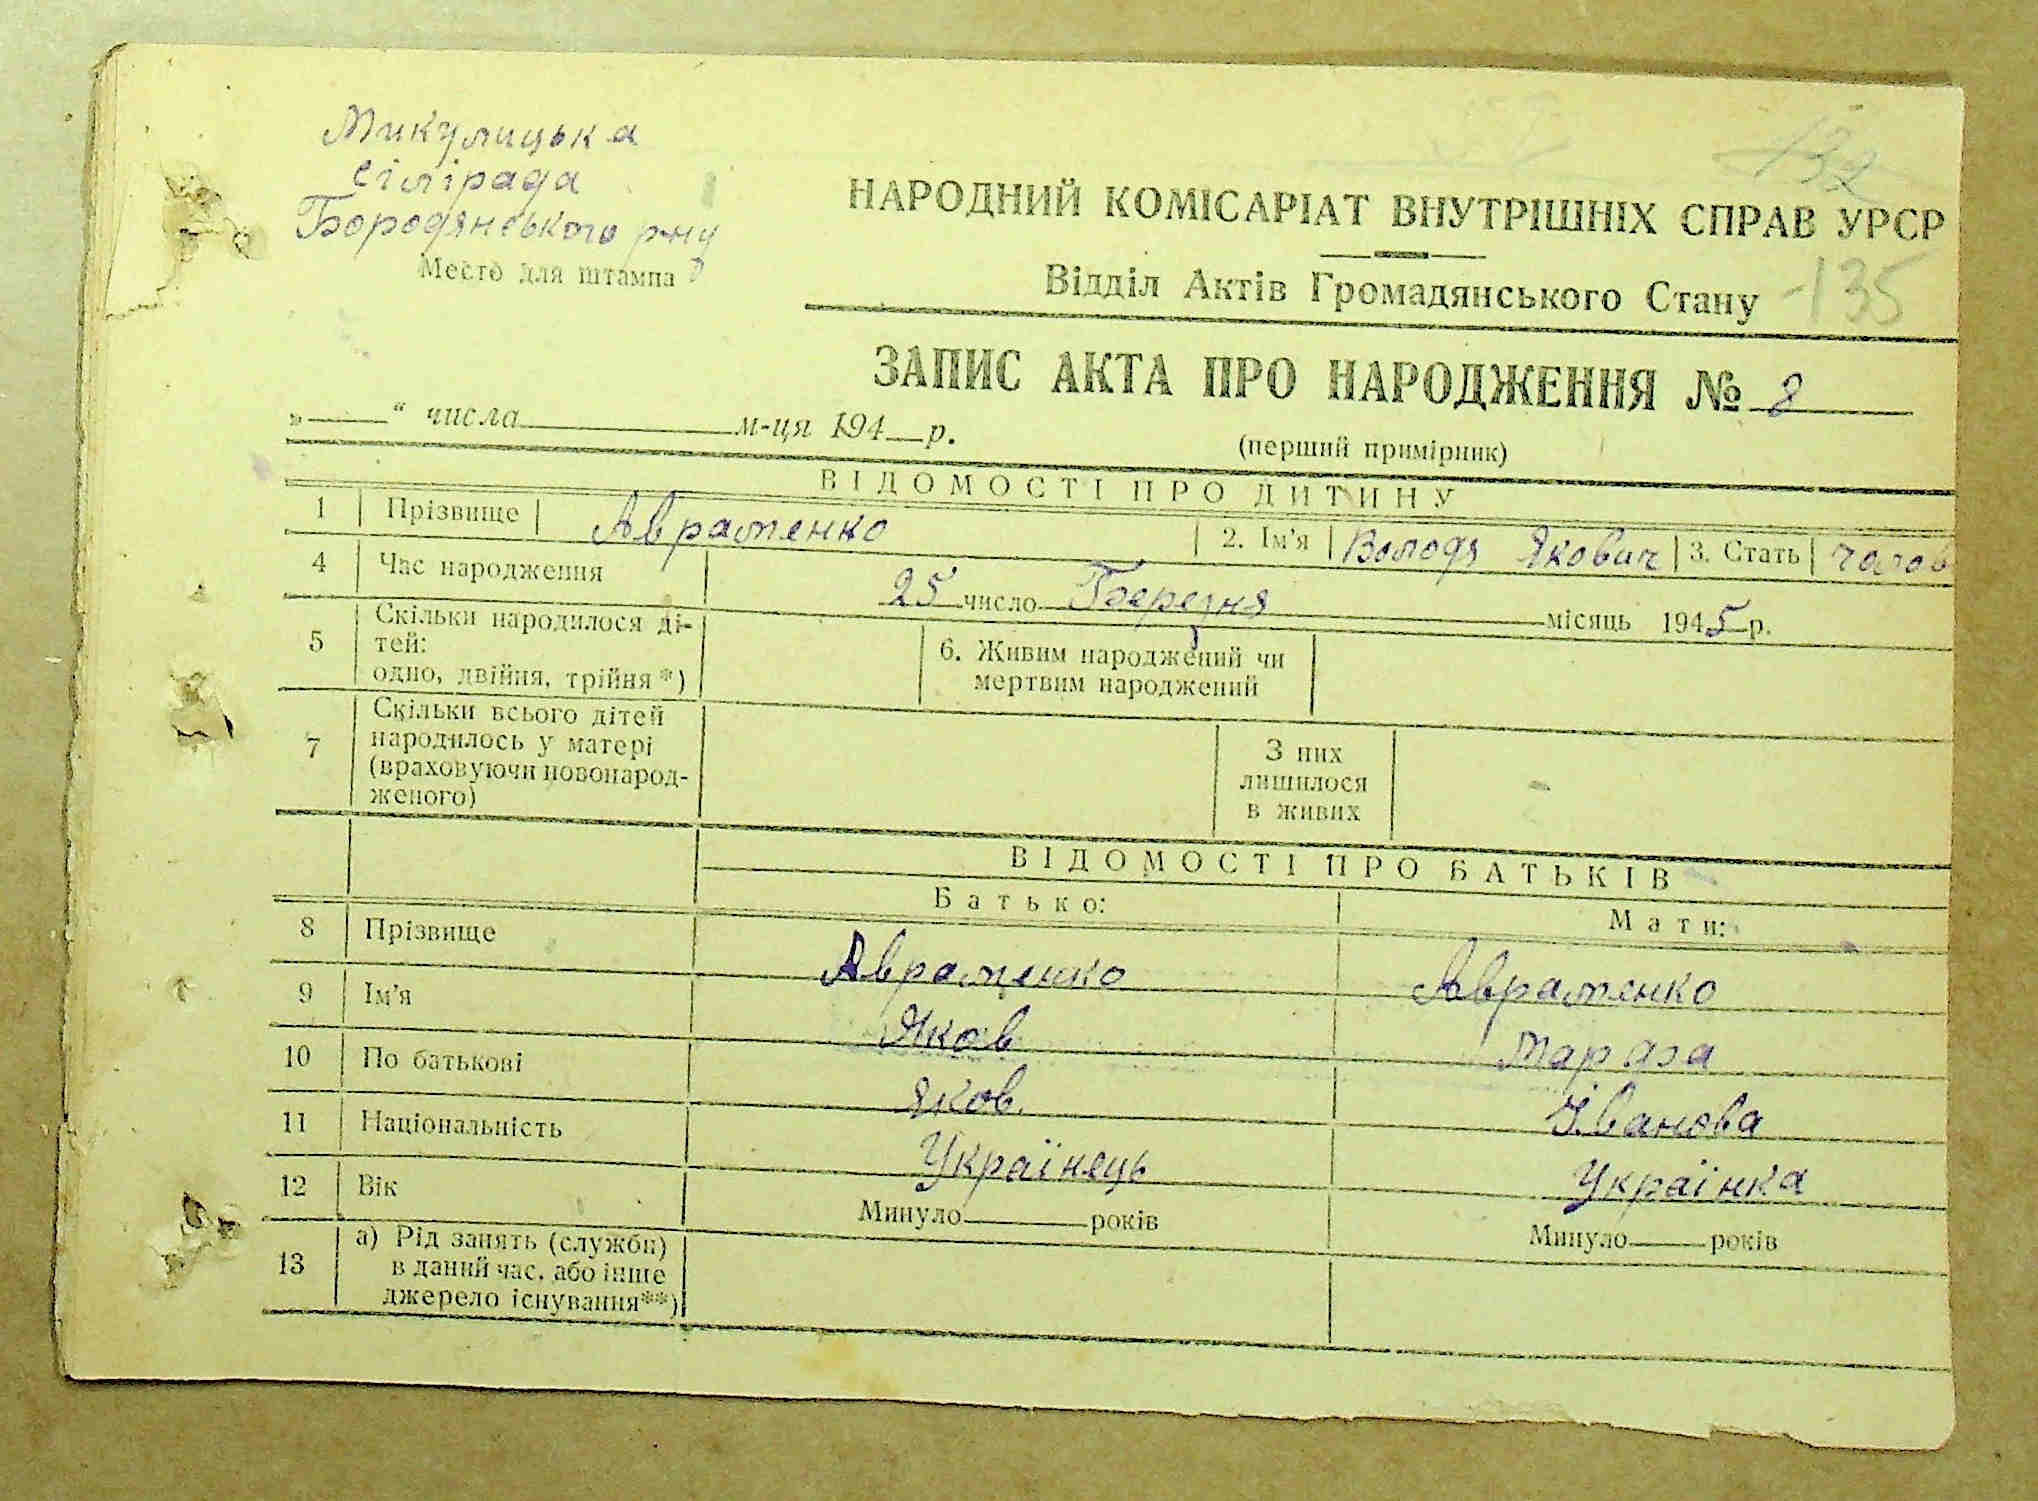 Микулицька
сілірада
Бородянського р-ну
Место для штампа
132
НАРОДНИЙ КОМІСАРІАТ ВНУТРІШНІХ СПРАВ УРСР
Відділ Актів Громадянського Стану
135
ЗАПИС АКТА ПРО НАРОДЖЕННЯ № 8
„___“ числа___ м-ця 194__р.
(перший примірник)
ВІДОМОСТІ ПРО ДИТИНУ
1 Прізвище Авраменко 2. Ім'я Володя Якович 3. Стать чолов
4 Час народження 25 число Березня місяць 1945 р.
5 Скільки народилося ді-
тей:
одно, двійня, трійня *)
6. Живим народжений чи
мертвим народжений
7 Скільки всього дітей
народилось у матері
(враховуючи новонарод-
женого)
З них
лишилося
в живих
ВІДОМОСТІ ПРО БАТЬКІВ
Батько: Мати:
8 Прізвище Авраменко Авраменко
9 Ім'я Яков
10 По батькові Яков. Іванова
11 Національність Українець Українка
12 Вік Минуло___років Минуло___років
13 а) Рід занять (служби)
в даний час, або інше
джерело існування**)